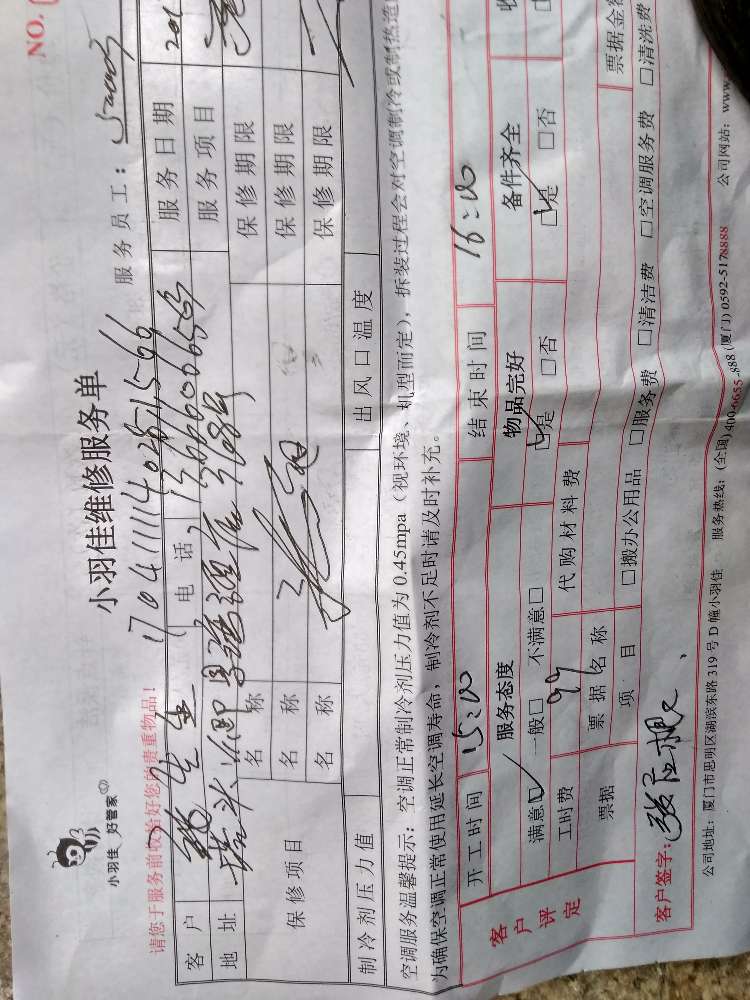 NO.
小羽佳 好管家
小羽佳维修服务单
请您于服务前收拾好您的贵重物品!
服务员工:
客户 电话 服务日期 201
地址 服务项目
保修项目 名称 保修期限
名称 保修期限
名称 保修期限
制冷剂压力值 出风口温度
空调服务温馨提示:空调正常制冷剂压力值为0.45mpa(视环境、机型而定),拆装过程会对空调制冷或制热造
为确保空调正常使用延长空调寿命,制冷剂不足时请及时补充。
开工时间 15:00 结束时间 16:00
客户评定 服务态度 物品完好 备件齐全 收
满意☑ 一般□ 不满意□ ☑是 □否 ☑是 □否
工时费 99 代购材料费 票据金额
票据 票据名称
项目 □搬办公用品 □服务费 □清洁费 □空调服务费 □清洗费
客户签字:
公司地址:厦门市思明区湖滨东路319号D幢小羽佳 服务热线:(全国)400-6655-888(厦门)0592-5178888 公司网站:www.